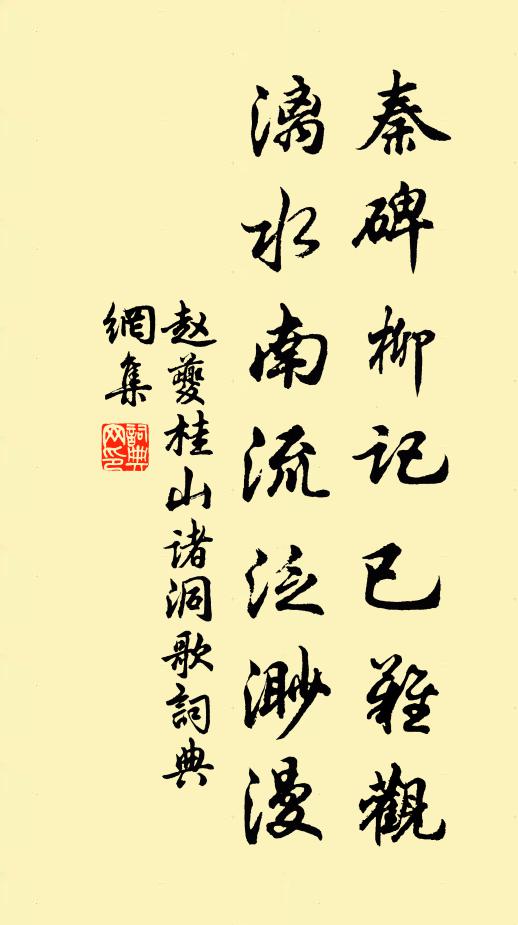 秦碑柳记已難觀
漓水南流泛渺漫
赵夔桂山诸洞歌詞典
網集
詞典网印